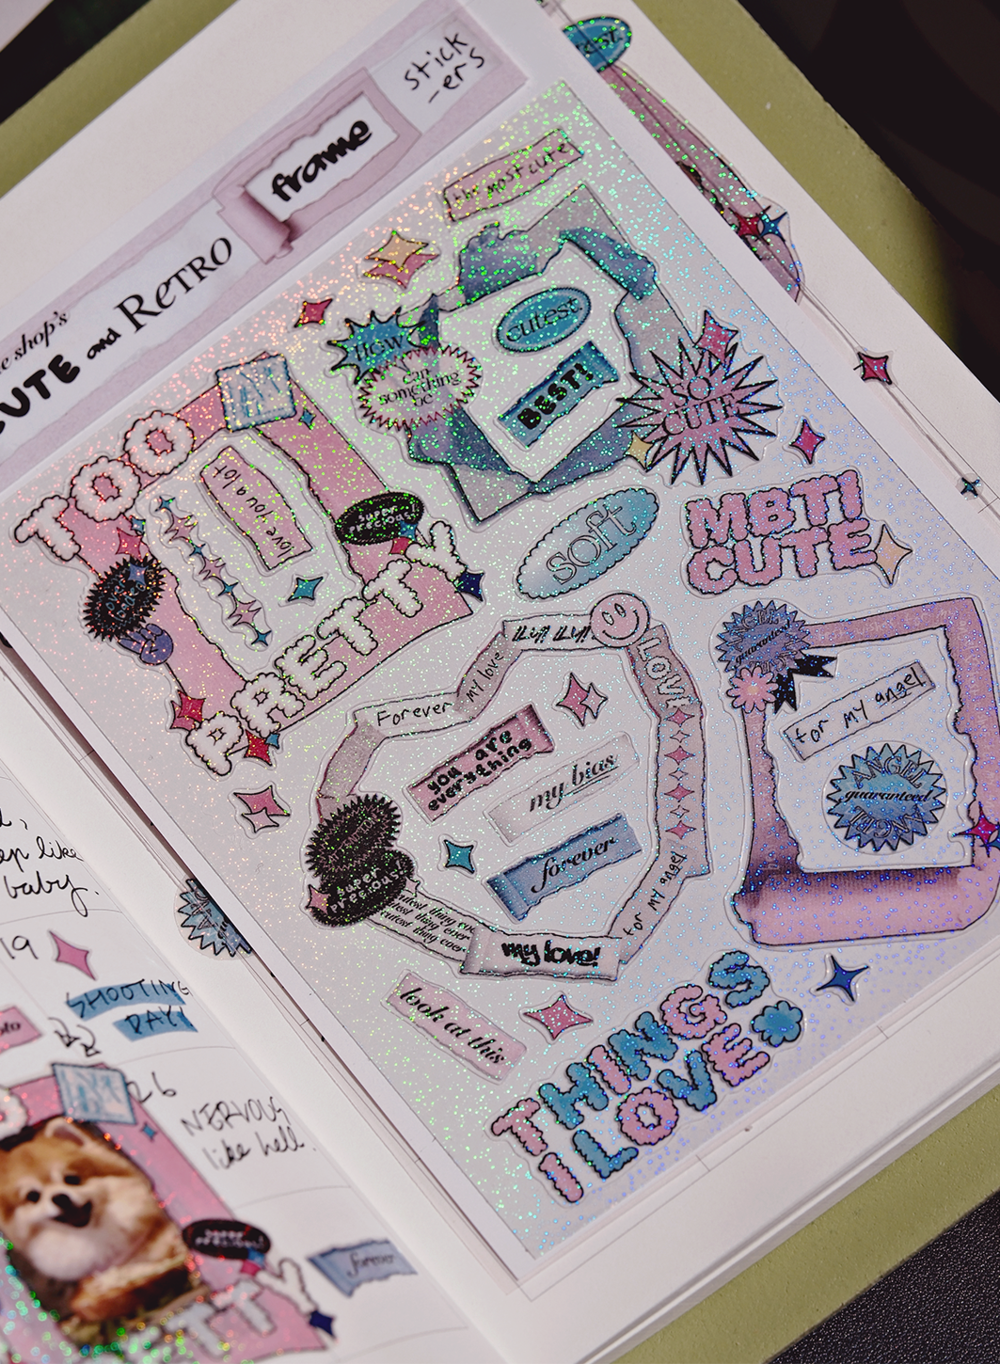 stick
-ers
frame
shop's
CUTE and RETRO
the most cute
cutest
BEST!
how
can
something
be
SO
CUTE
TOO
PRETTY
love you a lot
super
precious!
soft
MBTI
CUTE
LOVE
Forever my love
you are
everything
my bias
forever
super
precious!
cutest thing ever
cutest thing ever
for my angel
my love!
guaranteed
for my angel
ANGEL
guaranteed
look at this
THINGS
I LOVE
like
baby.
19
SHOOTING
DAY!
26
NERVOUS
like hell.
super
precious!
forever